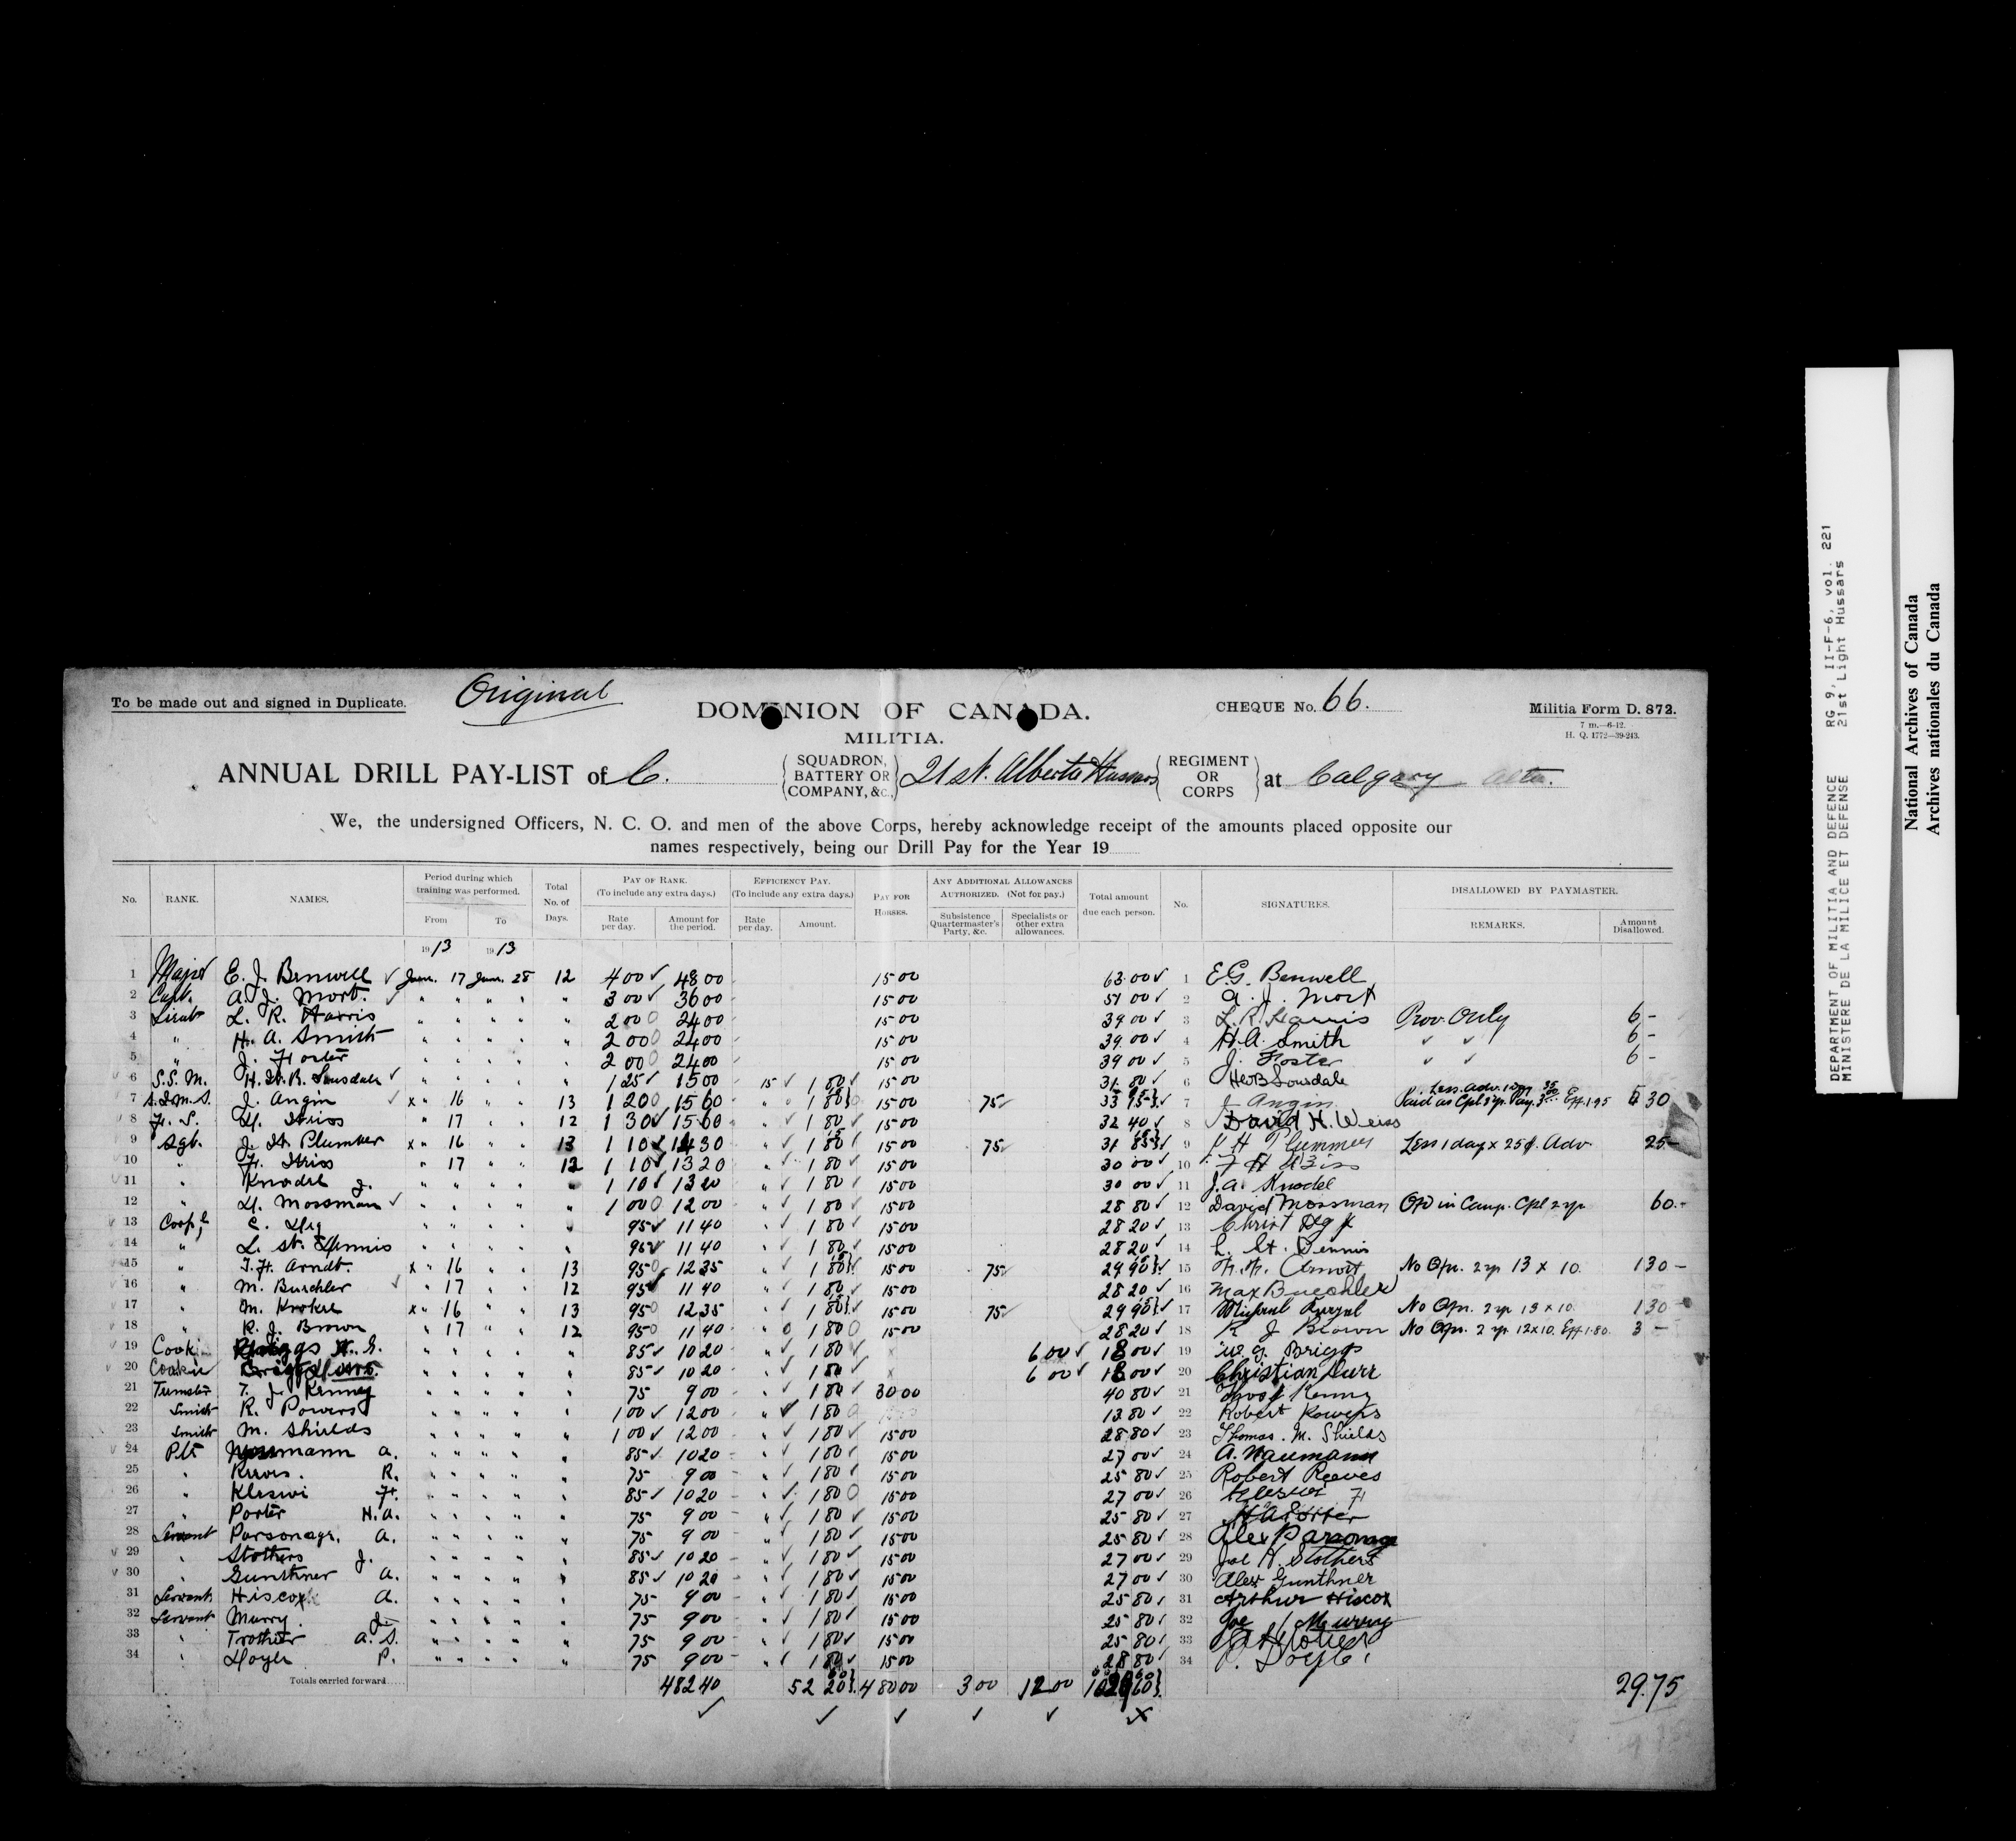 To be made out and signed in Duplicate. Original
DOMINION OF CANADA. CHEQUE No. 66. Militia Form D. 872.
7 m.—6-12.
MILITIA. H. Q. 1772—39-243.
ANNUAL DRILL PAY-LIST of C. SQUADRON, BATTERY OR COMPANY, &c., 21st. Alberta Hussars REGIMENT OR CORPS at Calgary Alta.
We, the undersigned Officers, N. C. O. and men of the above Corps, hereby acknowledge receipt of the amounts placed opposite our
names respectively, being our Drill Pay for the Year 19
No. RANK. NAMES. Period during which training was performed. From To Total No. of Days. PAY OF RANK. (To include any extra days.) Rate per day. Amount for the period. EFFICIENCY PAY. (To include any extra days.) Rate per day. Amount. PAY FOR HORSES. ANY ADDITIONAL ALLOWANCES AUTHORIZED. (Not for pay.) Subsistence Quartermaster's Party, &c. Specialists or other extra allowances. Total amount due each person. No. SIGNATURES. DISALLOWED BY PAYMASTER. REMARKS. Amount Disallowed.
1913 1913
1 Major E. J. Benwell June. 17 June. 28 12 4 00 48 00 15 00 63 00 1 E.G. Benwell
2 Capt. A. J. Mort. " " " " " 3 00 36 00 15 00 51 00 2 A. J. Mort
3 Lieut L. R. Harris " " " " " 2 00 24 00 15 00 39 00 3 L. R. Harris Prov. Only 6 -
4 " H. A. Smith " " " " " 2 00 24 00 15 00 39 00 4 H. A. Smith " " 6 -
5 " J. Foster " " " " " 2 00 24 00 15 00 39 00 5 J. Foster " " 6 -
6 S.S.M. H. W. B. Lonsdale " " " " " 1 25 15 00 15 1 80 15 00 31 80 6 HWB Lonsdale
7 J. Angin x " 16 " " 13 1 20 15 60 " 1 80 15 00 75 33 7 J Angin 30
8 F. S. D. Weiss " 17 " " 12 1 30 15 60 " 1 80 15 00 32 40 8 David H. Weiss
9 Sgt. J. H. Plummer x " 16 " " 13 1 10 14 30 " 1 80 15 00 75 31 85 9 J H Plummer Less 1 day x 25¢. Adv 25
10 " F. Weiss " 17 " " 12 1 10 13 20 " 1 80 15 00 30 00 10 F H Weiss
11 " Knodel J. " " " " " 1 10 13 20 " 1 80 15 00 30 00 11 J. A. Knodel
12 " D. Mossman " " " " " 1 00 12 00 " 1 80 15 00 28 80 12 David Mossman in Camp. Cpl 2 yr 60.-
13 Corp'l C. " " " " " 95 11 40 " 1 80 15 00 28 20 13 Christ
14 " L. St. Dennis " " " " " 95 11 40 " 1 80 15 00 28 20 14 L. St. Dennis
15 " F. Arndt. x " 16 " " 13 95 12 35 " 1 80 15 00 75 29 90 15 No Opr. 2 yr 13 x 10. 1 30 -
16 " M. Buechler " 17 " " 12 95 11 40 " 1 80 15 00 28 20 16 Max Buechler
17 " M. x " 16 " " 13 95 12 35 " 1 80 15 00 75 29 90 17 No Opr. 2 yr 13 x 10. 1 30 -
18 " R. J. Brown " 17 " " 12 95 11 40 " 1 80 15 00 28 20 18 R J Brown No Opr. 2 yr. 12x10. Eff 1.80. 3 -
19 Cook Briggs W. G. " " " " " 85 10 20 " 1 80 6 00 18 00 19 W. G. Briggs
20 Cook " " " " " 85 10 20 " 1 80 6 00 18 00 20 Christian Durr
21 Teamster T. J. Kenney " " " " " 75 9 00 " 1 80 30 00 40 80 21 Thos J Kenny
22 Smith R. Powers " " " " " 1 00 12 00 " 1 80 13 80 22 Robert Powers
23 Smith M. Shields " " " " " 1 00 12 00 " 1 80 15 00 28 80 23 Thomas. M. Shields
24 Pte A. " " " " " 85 10 20 " 1 80 15 00 27 00 24 A. Naumann
25 " Reeves. R. " " " " " 75 9 00 " 1 80 15 00 25 80 25 Robert Reeves
26 " Kleswi F. " " " " " 85 10 20 " 1 80 15 00 27 00 26
27 " Porter H. A. " " " " " 75 9 00 " 1 80 15 00 25 80 27 H A Porter
28 Servant Parsonage. A. " " " " " 75 9 00 " 1 80 15 00 25 80 28 Alex Parsonage
29 " Stothers J. " " " " " 85 10 20 " 1 80 15 00 27 00 29 Joe H. Stothers
30 " Gunthner A. " " " " " 85 10 20 " 1 80 15 00 27 00 30 Alex Gunthner
31 Servant Hiscox A. " " " " " 75 9 00 " 1 80 15 00 25 80 31 Arthur Hiscox
32 Servant Murry J. " " " " " 75 9 00 " 1 80 15 00 25 80 32 Joe Murray
33 " Trotter A. S. " " " " " 75 9 00 " 1 80 15 00 25 80 33
34 " Doyle P. " " " " " 75 9 00 " 1 80 15 00 34 P. Doyle
Totals carried forward 482 40 52 20 480 00 3 00 12 00 29.75
DEPARTMENT OF MILITIA AND DEFENCE RG 9, II-F-6, vol. 221
MINISTERE DE LA MILICE ET DEFENSE 21st Light Hussars
National Archives of Canada
Archives nationales du Canada